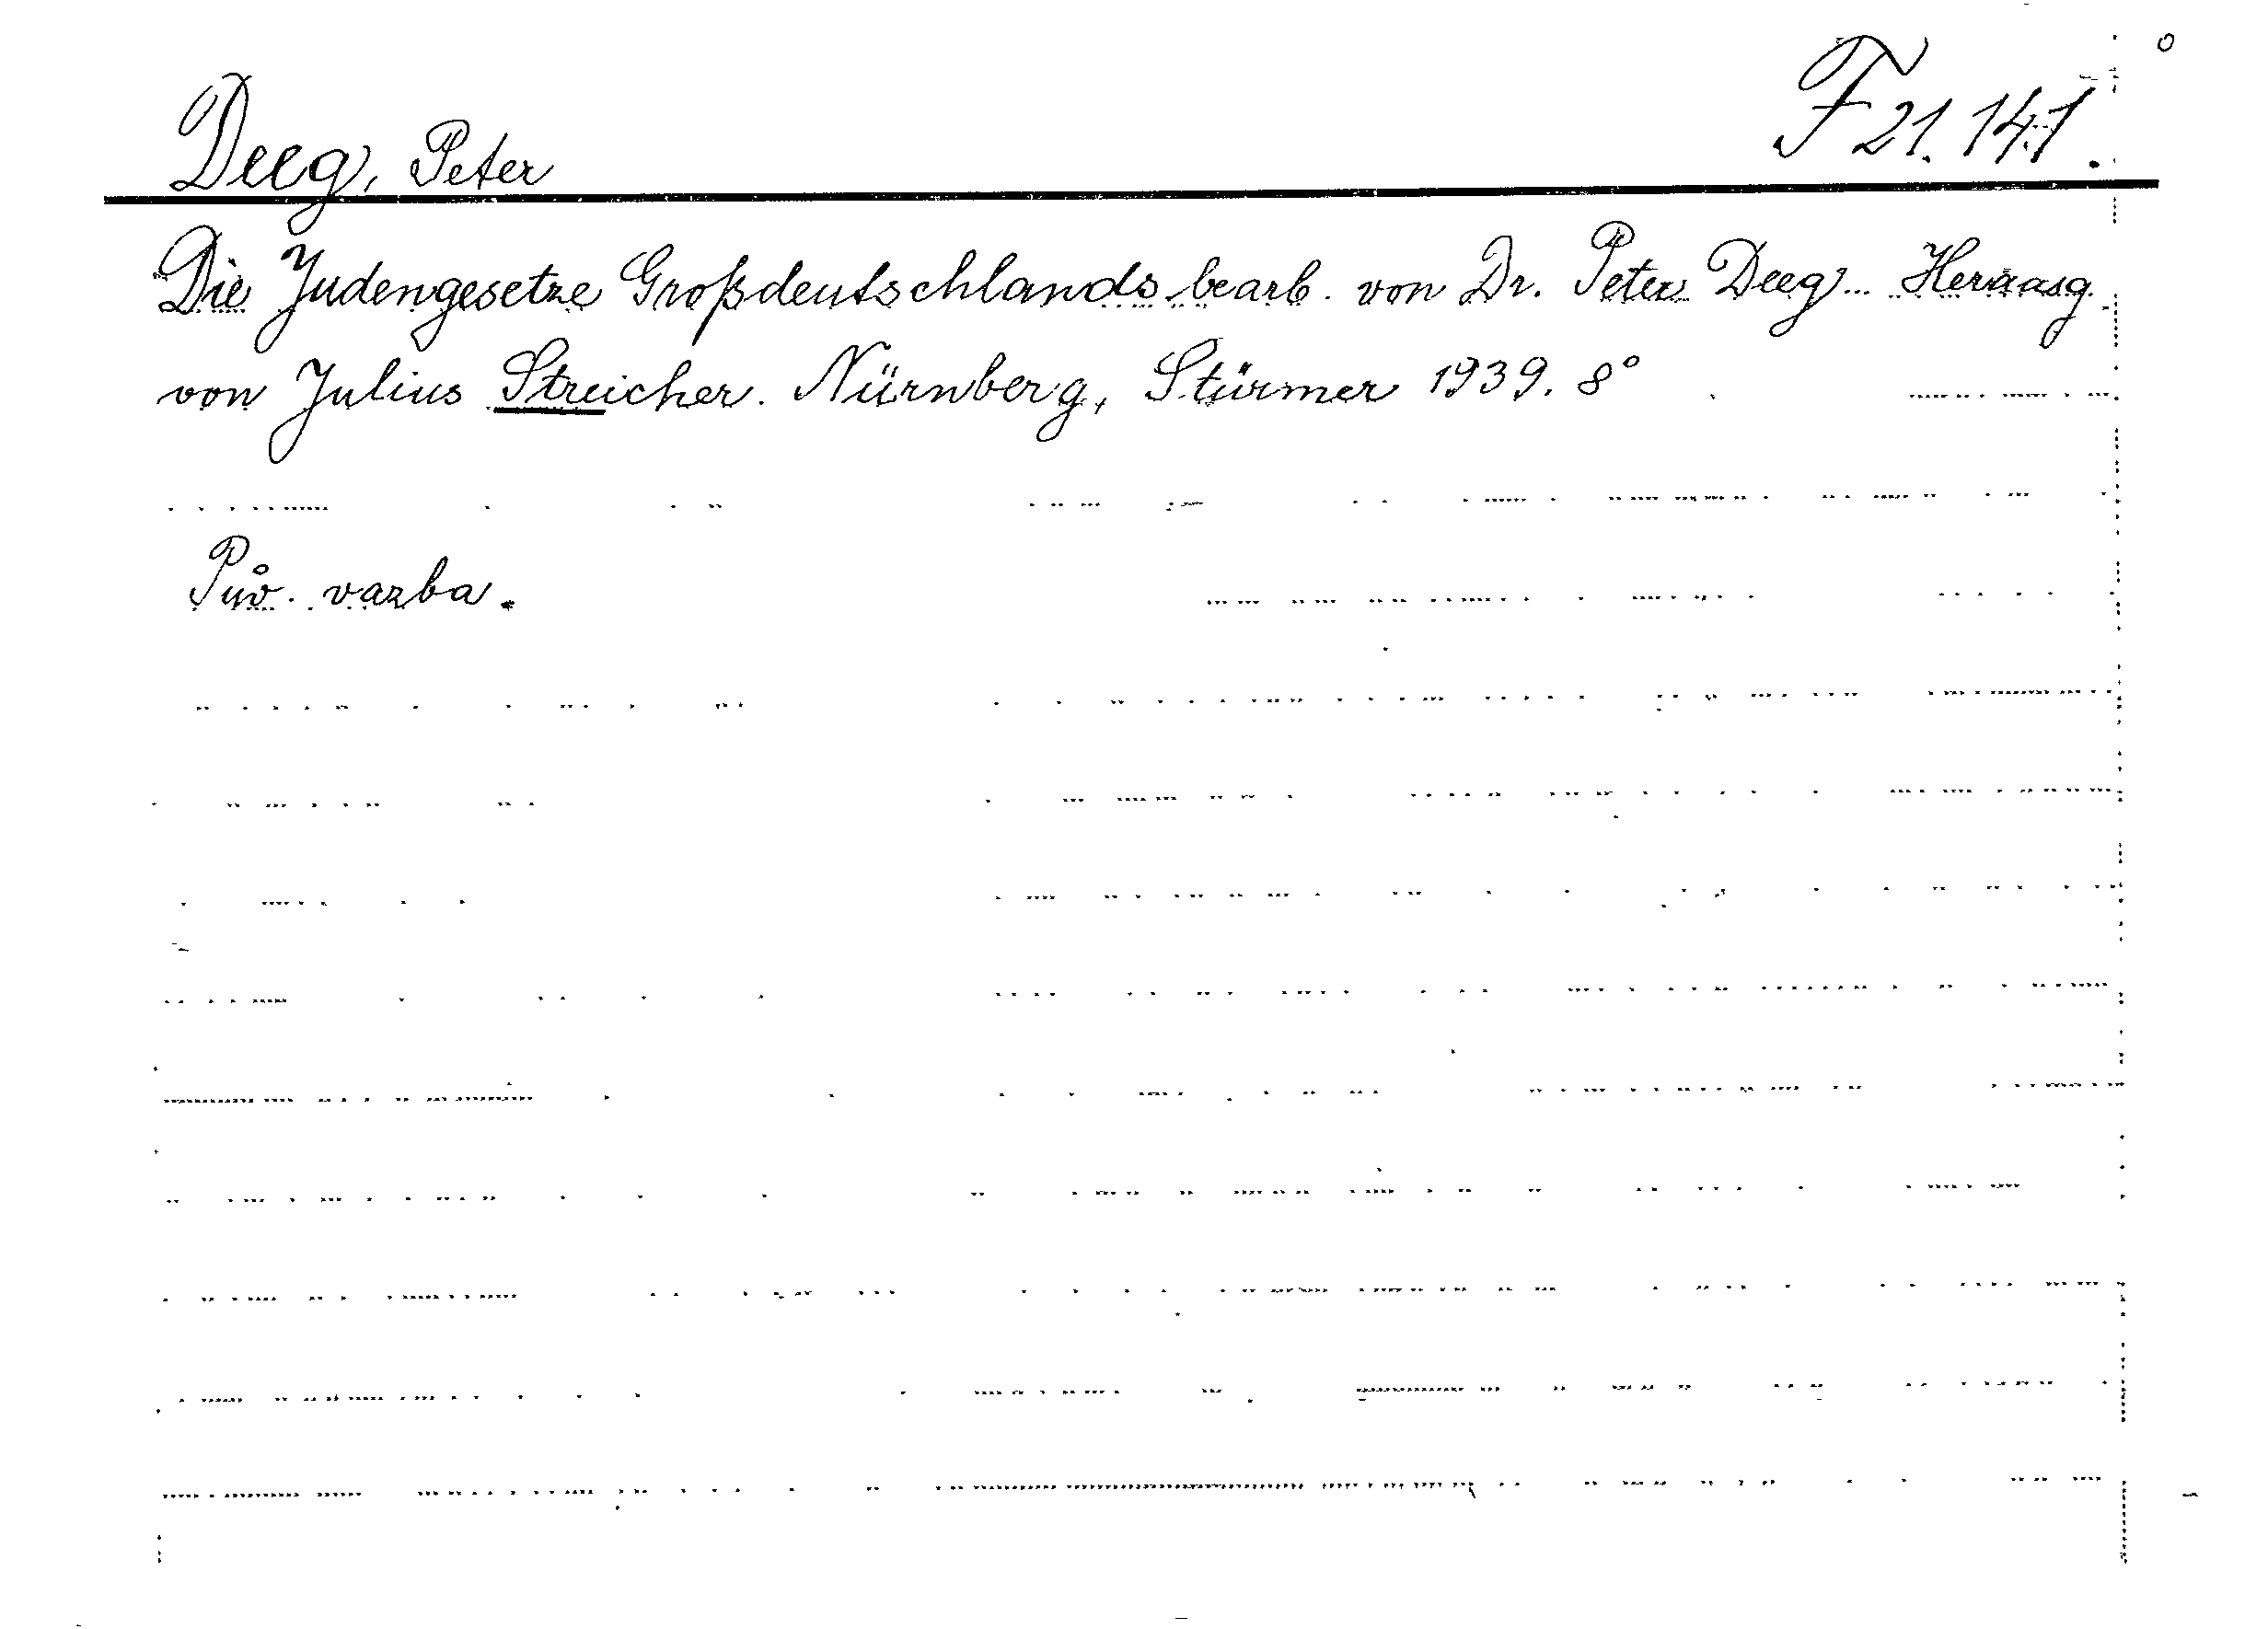 Deeg, Peter F 21.141.
Die Judengesetze Großdeutschlands bearb. von Dr. Peter Deeg... Herausg.
von Julius Streicher. Nürnberg, Stürmer 1939. 8°
Pův. vazba.